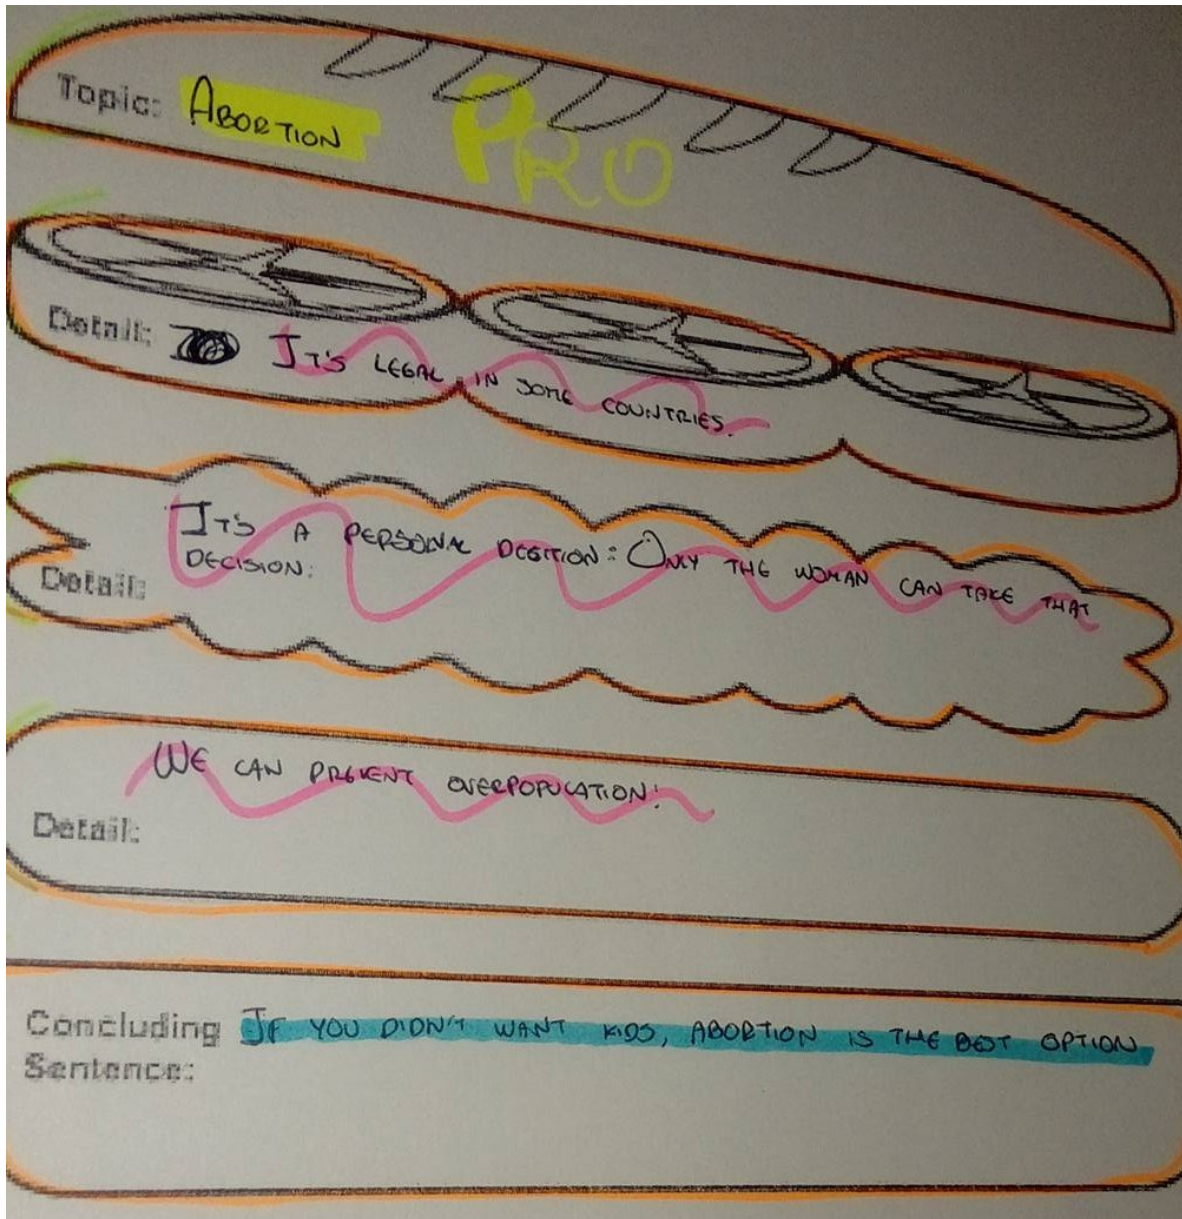 Topic: ABORTION PRO
Detail: IT'S LEGAL IN SOME COUNTRIES.
IT'S A PERSONAL DESITION: ONLY THE WOMAN CAN TAKE THAT
DECISION.
Detail:
WE CAN PREVENT OVERPOPULATION!
Detail:
Concluding IF YOU DIDN'T WANT KIDS, ABORTION IS THE BEST OPTION
Sentence: